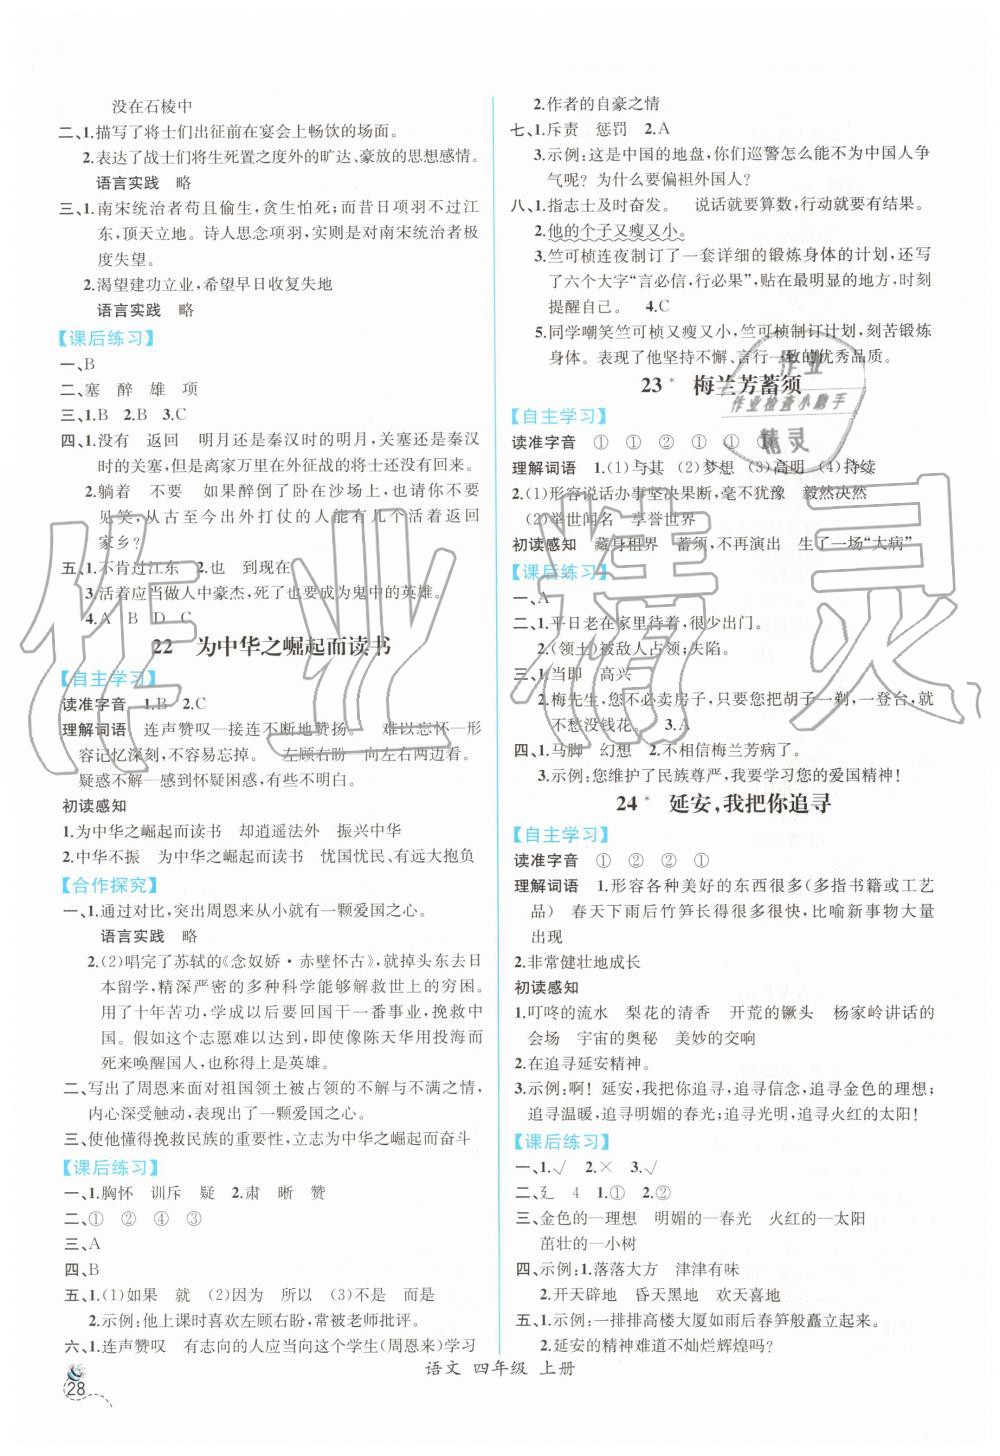 没在石棱中
二、1.描写了将士们出征前在宴会上畅饮的场面。
2.表达了战士们将生死置之度外的旷达、豪放的思想感情。
语言实践 略
三、1.南宋统治者苟且偷生,贪生怕死;而昔日项羽不过江
东,顶天立地。诗人思念项羽,实则是对南宋统治者极
度失望。
2.渴望建功立业,希望早日收复失地
语言实践 略
【课后练习】
一、B
二、塞 醉 雄 项
三、1.B 2.B 3.C
四、1.没有 返回 明月还是秦汉时的明月,关塞还是秦汉
时的关塞,但是离家万里在外征战的将士还没有回来。
2.躺着 不要 如果醉倒了卧在沙场上,请你不要
见笑,从古至今出外打仗的人能有几个活着返回
家乡?
五、1.不肯过江东 2.也 到现在
3.活着应当做人中豪杰,死了也要成为鬼中的英雄。
4.A B D C
22 为中华之崛起而读书
【自主学习】
读准字音 1.B 2.C
理解词语 连声赞叹—接连不断地赞扬。 难以忘怀—形
容记忆深刻,不容易忘掉。 左顾右盼—向左右两边看。
疑惑不解—感到怀疑困惑,有些不明白。
初读感知
1.为中华之崛起而读书 却逍遥法外 振兴中华
2.中华不振 为中华之崛起而读书 忧国忧民、有远大抱负
【合作探究】
一、1.通过对比,突出周恩来从小就有一颗爱国之心。
语言实践 略
2.(2)唱完了苏轼的《念奴娇·赤壁怀古》,就掉头东去日
本留学,精深严密的多种科学能够解救世上的穷困。
用了十年苦功,学成以后要回国干一番事业,挽救中
国。假如这个志愿难以达到,即使像陈天华用投海而
死来唤醒国人,也称得上是英雄。
二、写出了周恩来面对祖国领土被占领的不解与不满之情,
内心深受触动,表现了一颗爱国之心。
三、使他懂得挽救民族的重要性,立志为中华之崛起而奋斗
【课后练习】
一、1.胸怀 训斥 疑 2.肃 晰 赞
二、① ② ④ ③
三、A
四、B
五、1.(1)如果 就 (2)因为 所以 (3)不是 而是
2.示例:他上课时喜欢左顾右盼,常被老师批评。
六、1.连声赞叹 有志向的人应当向这个学生(周恩来)学习
2.作者的自豪之情
七、1.斥责 惩罚 2.A
3.示例:这是中国的地盘,你们巡警怎么能不为中国人争
气呢? 为什么要偏袒外国人?
八、1.指志士及时奋发。 说话就要算数,行动就要有结果。
2.他的个子又瘦又小。
3.竺可桢连夜制订了一套详细的锻炼身体的计划,还写
了六个大字“言必信,行必果”,贴在最明显的地方,时刻
提醒自己。 4.C
5.同学嘲笑竺可桢又瘦又小,竺可桢制订计划,刻苦锻炼
身体。表现了他坚持不懈、言行一致的优秀品质。
23* 梅兰芳蓄须
【自主学习】
读准字音 ① ① ② ① ① ①
理解词语 1.(1)与其 (2)梦想 (3)高明 (4)持续
2.(1)形容说话办事坚决果断,毫不犹豫 毅然决然
(2)举世闻名 享誉世界
初读感知 藏身租界 蓄须,不再演出 生了一场“大病”
【课后练习】
一、A
二、1.平日老在家里待着,很少出门。
2.(领土)被敌人占领;失陷。
三、1.当即 高兴
2.梅先生,您不必卖房子,只要您把胡子一剃,一登台,就
不愁没钱花。 3.A
四、1.马脚 幻想 2.不相信梅兰芳病了。
3.示例:您维护了民族尊严,我要学习您的爱国精神!
24* 延安,我把你追寻
【自主学习】
读准字音 ① ② ② ①
理解词语 1.形容美好的东西很多(多指书籍或工艺
品) 春天下雨后竹笋长得很多很快,比喻新事物大量
出现
2.非常健壮地成长
初读感知
1.叮咚的流水 梨花的清香 开荒的镢头 杨家岭讲话的
会场 宇宙的奥秘 美妙的交响
2.在追寻延安精神。
3.示例:啊! 延安,我把你追寻,追寻信念,追寻金色的理想;
追寻温暖,追寻明媚的春光;追寻光明,追寻火红的太阳!
【课后练习】
一、1.√ 2.× 3.√
二、廴 4 1.① 2.②
三、金色的—理想 明媚的—春光 火红的—太阳
茁壮的—小树
四、示例:1.落落大方 津津有味
2.开天辟地 昏天黑地 欢天喜地
五、1.示例:一排排高楼大厦如雨后春笋般矗立起来。
2.延安的精神难道不灿烂辉煌吗?
语文 四年级 上册
28
作业
作业检查小助手
精灵
作业精灵